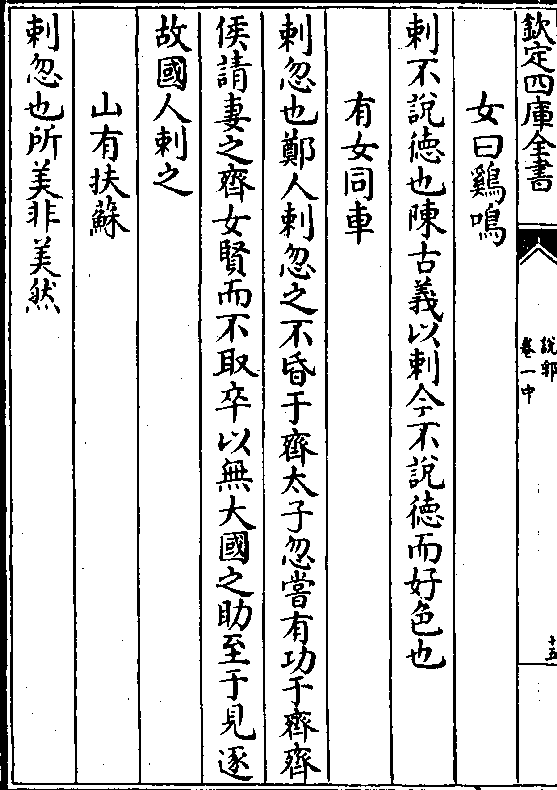 欽定四庫全書
說郛
卷一中
十五
女曰鷄鳴
刺不說徳也陳古義以刺今不說徳而好色也
有女同車
刺忽也鄭人刺忽之不昏于齊太子忽嘗有功于齊齊
侯請妻之齊女賢而不取卒以無大國之助至于見逐
故國人刺之
山有扶蘇
刺忽也所美非美然